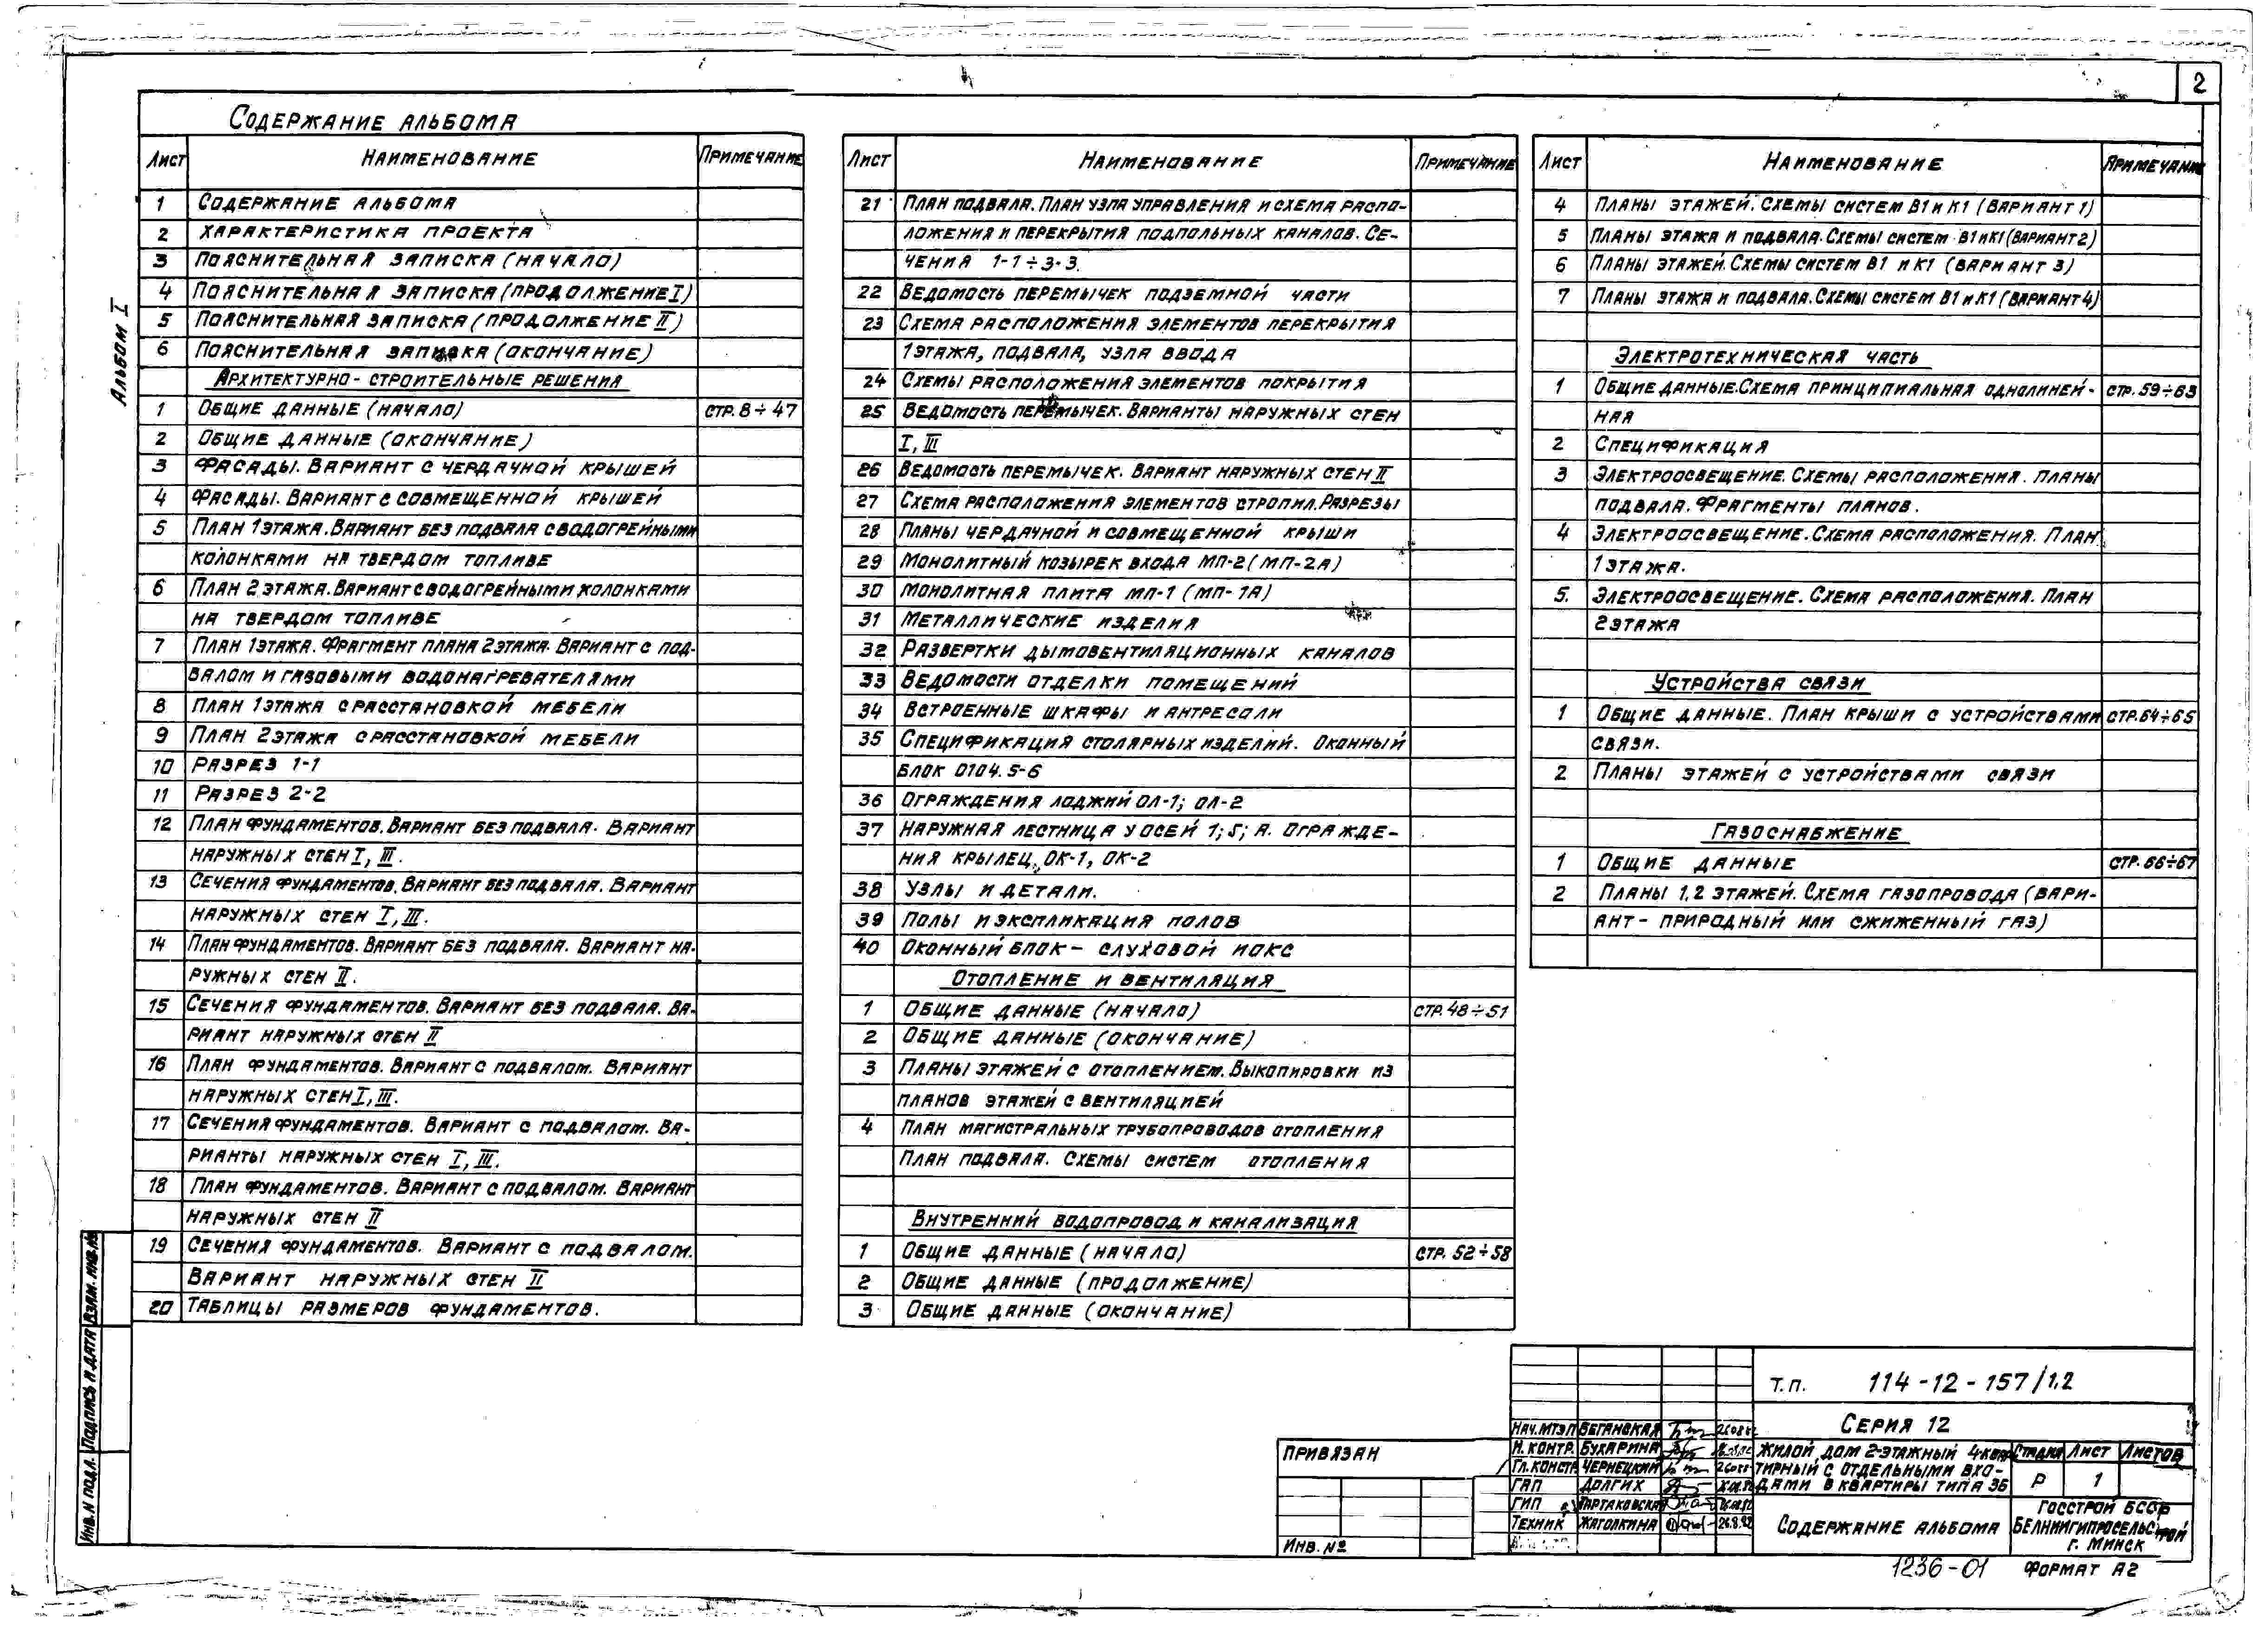 2
Содержание альбома
Альбом I
Лист Наименование Примечание
1 Содержание альбома
2 Характеристика проекта
3 Пояснительная записка (начало)
4 Пояснительная записка (продолжение I)
5 Пояснительная записка (продолжение II)
6 Пояснительная записка (окончание)
Архитектурно-строительные решения
1 Общие данные (начало) стр. 8÷47
2 Общие данные (окончание)
3 Фасады. Вариант с чердачной крышей
4 Фасады. Вариант с совмещенной крышей
5 План 1 этажа. Вариант без подвала с водогрейными
колонками на твердом топливе
6 План 2 этажа. Вариант с водогрейными колонками
на твердом топливе
7 План 1 этажа. Фрагмент плана 2 этажа. Вариант с под-
валом и газовыми водонагревателями
8 План 1 этажа с расстановкой мебели
9 План 2 этажа с расстановкой мебели
10 Разрез 1-1
11 Разрез 2-2
12 План фундаментов. Вариант без подвала. Вариант
наружных стен I, III.
13 Сечения фундаментов. Вариант без подвала. Вариант
наружных стен I, III.
14 План фундаментов. Вариант без подвала. Вариант на-
ружных стен II.
15 Сечения фундаментов. Вариант без подвала. Ва-
риант наружных стен II
16 План фундаментов. Вариант с подвалом. Вариант
наружных стен I, III.
17 Сечения фундаментов. Вариант с подвалом. Ва-
рианты наружных стен I, III.
18 План фундаментов. Вариант с подвалом. Вариант
наружных стен II
19 Сечения фундаментов. Вариант с подвалом.
Вариант наружных стен II
20 Таблицы размеров фундаментов.
Лист Наименование Примечание
21 План подвала. План узла управления и схема распо-
ложения и перекрытия подпольных каналов. Се-
чения 1-1÷3-3.
22 Ведомость перемычек подземной части
23 Схема расположения элементов перекрытия
1 этажа, подвала, узла ввода
24 Схемы расположения элементов покрытия
25 Ведомость перемычек. Варианты наружных стен
I, III
26 Ведомость перемычек. Вариант наружных стен II
27 Схема расположения элементов стропил. Разрезы
28 Планы чердачной и совмещенной крыши
29 Монолитный козырек входа МП-2 (МП-2А)
30 Монолитная плита МП-1 (МП-1А)
31 Металлические изделия
32 Развертки дымовентиляционных каналов
33 Ведомости отделки помещений
34 Встроенные шкафы и антресоли
35 Спецификация столярных изделий. Оконный
блок 0104.5-6
36 Ограждения лоджий ОЛ-1; ОЛ-2
37 Наружная лестница у осей 1; 5; А. Огражде-
ния крылец, ОК-1, ОК-2
38 Узлы и детали.
39 Полы и экспликация полов
40 Оконный блок - слуховой ИОКС
Отопление и вентиляция
1 Общие данные (начало) стр. 48÷51
2 Общие данные (окончание)
3 Планы этажей с отоплением. Выкопировки из
планов этажей с вентиляцией
4 План магистральных трубопроводов отопления
План подвала. Схемы систем отопления
Внутренний водопровод и канализация
1 Общие данные (начало) стр. 52÷58
2 Общие данные (продолжение)
3 Общие данные (окончание)
Лист Наименование Примечание
4 Планы этажей. Схемы систем В1 и К1 (вариант 1)
5 Планы этажа и подвала. Схемы систем В1 и К1 (вариант 2)
6 Планы этажей. Схемы систем В1 и К1 (вариант 3)
7 Планы этажа и подвала. Схемы систем В1 и К1 (вариант 4)
Электротехническая часть
1 Общие данные. Схема принципиальная однолиней- стр. 59÷63
ная
2 Спецификация
3 Электроосвещение. Схемы расположения. Планы
подвала. Фрагменты планов.
4 Электроосвещение. Схема расположения. План
1 этажа.
5. Электроосвещение. Схема расположения. План
2 этажа
Устройства связи
1 Общие данные. План крыши с устройствами стр. 64÷65
связи.
2 Планы этажей с устройствами связи
Газоснабжение
1 Общие данные стр. 66÷67
2 Планы 1,2 этажей. Схема газопровода (вари-
ант - природный или сжиженный газ)
Инв. N подл. Подпись и дата Взам. инв. №
Привязан
Инв. №
Т.П. 114-12-157/1.2
Серия 12
Нач. МТЭП Беганская
Н. контр. Бухарина
Гл. констр. Чернецкий
ГАП Долгих
ГИП
Техник Жаголкина 26.8.82
Жилой дом 2-этажный 4-квар-
тирный с отдельными вхо-
дами в квартиры типа 3Б
Стадия Лист Листов
Р 1
Содержание альбома
Госстрой БССР
БелНИИгипросельстрой
г. Минск
1236-01 Формат А2